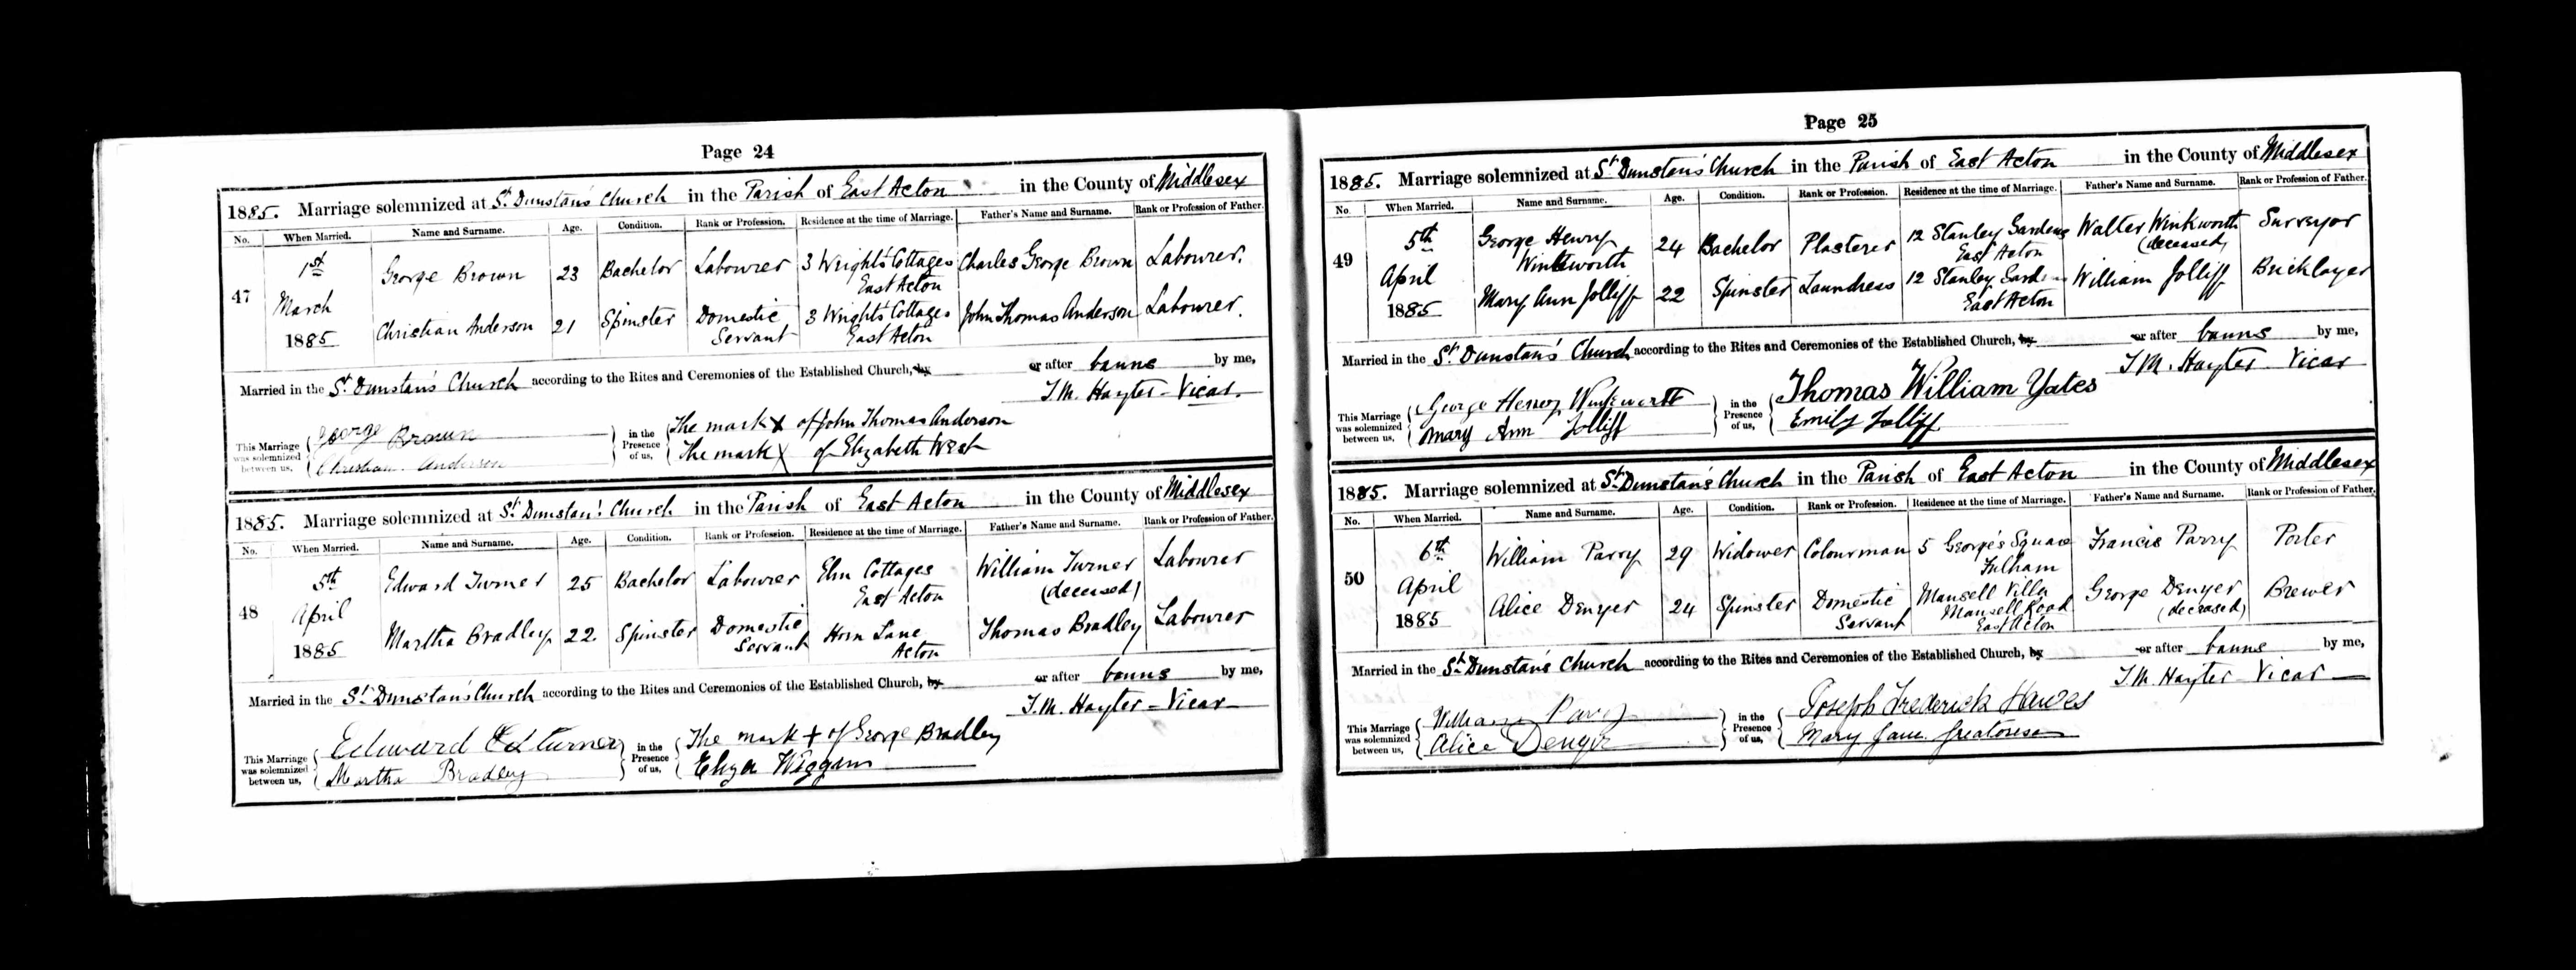 Page 24
1885. Marriage solemnized at St. Dunstan's Church in the Parish of East Acton in the County of Middlesex
No. When Married. Name and Surname. Age. Condition. Rank or Profession. Residence at the time of Marriage. Father's Name and Surname. Rank or Profession of Father.
47 1st March 1885 George Brown 23 Bachelor Labourer 3 Wright's Cottages East Acton Charles George Brown Labourer.
Christian Anderson 21 Spinster Domestic Servant 3 Wright's Cottages East Acton John Thomas Anderson Labourer.
Married in the St. Dunstan's Church according to the Rites and Ceremonies of the Established Church, by or after banns by me,
J.M. Hayter - Vicar.
This Marriage was solemnized between us, George Brown Christian Anderson in the Presence of us, The mark X of John Thomas Anderson
The mark X of Elizabeth West
1885. Marriage solemnized at St. Dunstan's Church in the Parish of East Acton in the County of Middlesex
No. When Married. Name and Surname. Age. Condition. Rank or Profession. Residence at the time of Marriage. Father's Name and Surname. Rank or Profession of Father.
48 5th April 1885 Edward Turner 25 Bachelor Labourer Elm Cottages East Acton William Turner (deceased) Labourer
Martha Bradley 22. Spinster Domestic Servant Horn Lane Acton Thomas Bradley Labourer
Married in the St. Dunstan's Church according to the Rites and Ceremonies of the Established Church, by or after banns by me,
J.M. Hayter - Vicar
This Marriage was solemnized between us, Edward Turner Martha Bradley in the Presence of us, The mark + of George Bradley
Eliza Wiggans
Page 25
1885. Marriage solemnized at St. Dunstan's Church in the Parish of East Acton in the County of Middlesex
No. When Married. Name and Surname. Age. Condition. Rank or Profession. Residence at the time of Marriage. Father's Name and Surname. Rank or Profession of Father.
49 5th April 1885 George Henry Winkworth 24 Bachelor Plasterer 12 Stanley Gardens East Acton Walter Winkworth (deceased) Surveyor
Mary Ann Jolliff 22 Spinster Laundress 12 Stanley Gardens East Acton William Jolliff Bricklayer
Married in the St. Dunstan's Church according to the Rites and Ceremonies of the Established Church, by or after banns by me,
J.M. Hayter - Vicar
This Marriage was solemnized between us, George Henry Winkworth Mary Ann Jolliff in the Presence of us, Thomas William Yates
Emily Jolliff
1885. Marriage solemnized at St. Dunstan's Church in the Parish of East Acton in the County of Middlesex
No. When Married. Name and Surname. Age. Condition. Rank or Profession. Residence at the time of Marriage. Father's Name and Surname. Rank or Profession of Father.
50 6th April 1885 William Parry 29 Widower Colourman 5 George's Square Fulham Francis Parry Porter
Alice Denyer 24 Spinster Domestic Servant Mansell Villa Mansell Road East Acton George Denyer (deceased) Brewer
Married in the St. Dunstan's Church according to the Rites and Ceremonies of the Established Church, by or after banns by me,
J.M. Hayter - Vicar
This Marriage was solemnized between us, William Parry Alice Denyer in the Presence of us, Joseph Frederick Hawes
Mary Jane Greatorex